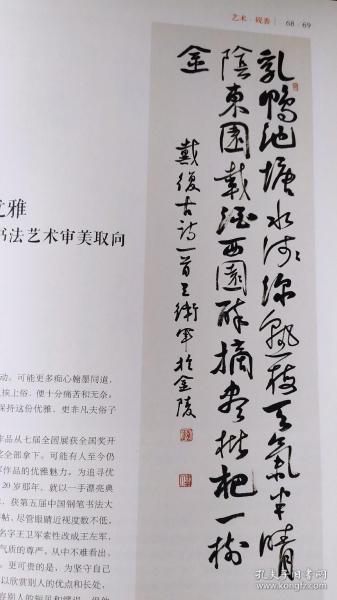 艺术·砚香 68/69
乳鴨池塘水浅深熟梅天氣半晴
陰東園載酒西園醉摘盡枇杷一樹
金
戴復古詩一首王衛軍於金陵
雅
书法艺术审美取向
动。可能更多痴心翰墨同道,
人挨上俗,便十分痛苦和无奈。
保持这份优雅,更非凡夫俗子
作品从七届全国展获全国奖开
奖全部拿下。可能有人至今仍
军作品的优雅魅力。为追寻优
20岁那年,就以一手漂亮典
,获第五届中国钢笔书法大
帖,尽管眼睛近视度数不低,
名字王卫军素性改成王左军,
气质的尊严。从中不难看出,
。更可贵的是,为坚守自己
以欣赏别人的优点和长处,
孔夫子旧书网